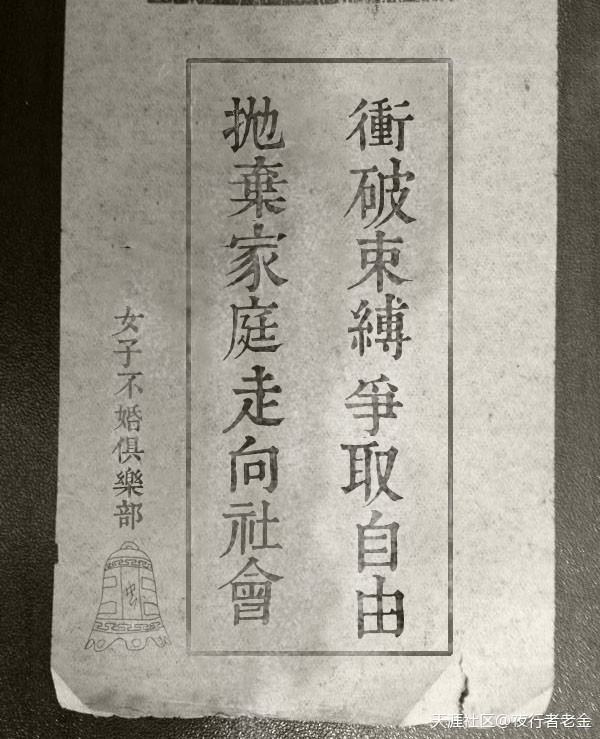 衝破束縛爭取自由
拋棄家庭走向社會
女子不婚俱樂部
天涯社区@夜行者老金